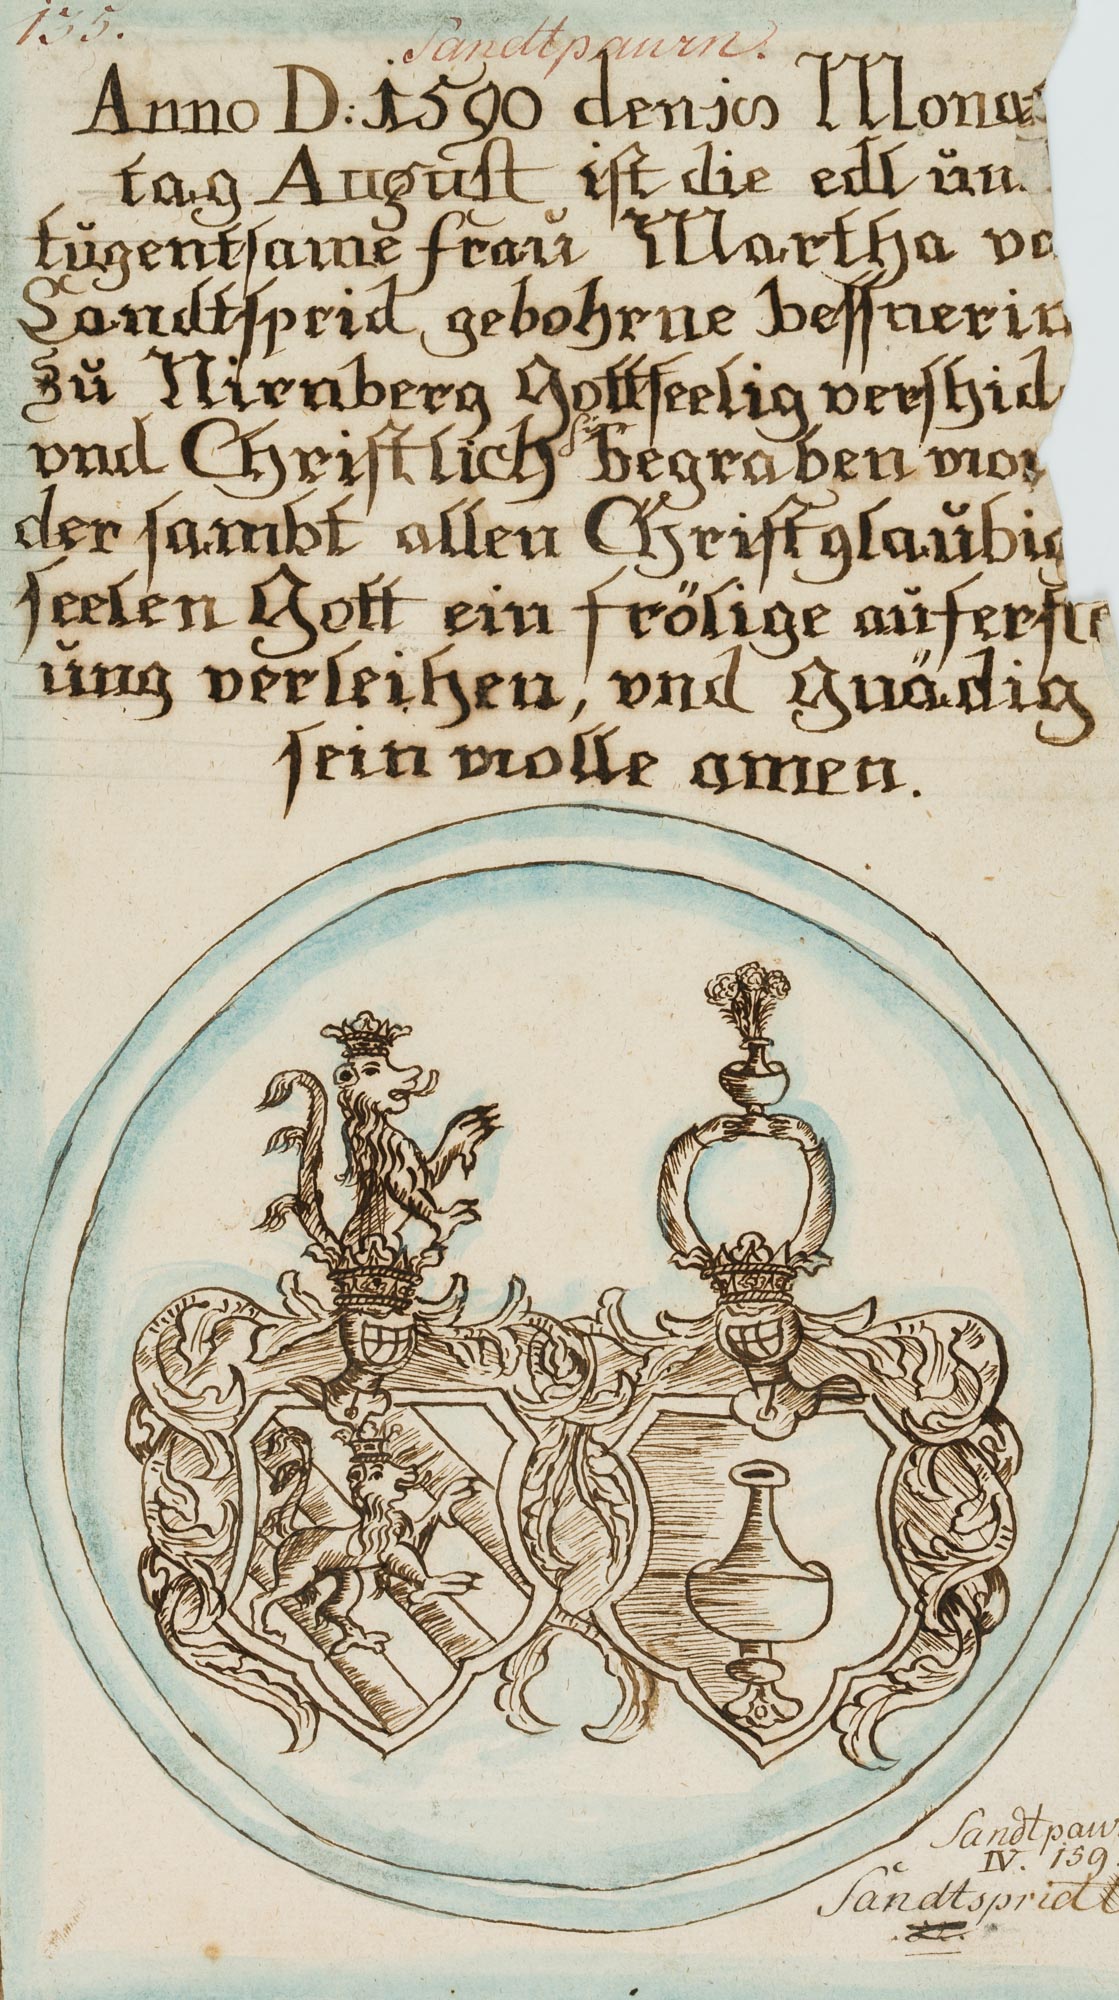 135.
Sandtpaurn.
Anno D: 1590 den Mona
tag August ist die edl ŭn
tŭgentsame fraŭ Martha vo
Sandtsprid gebohrne bessnerin
zŭ Nirnberg Gottseelig vershid
vnd Christlich hir begraben wor
der sambt allen Christglaŭbig
seelen Gott ein frölige aŭferste
ŭng verleihen, vnd gnädig
sein wolle amen.
Sandtpaur
IV. 159
Sandtsprid